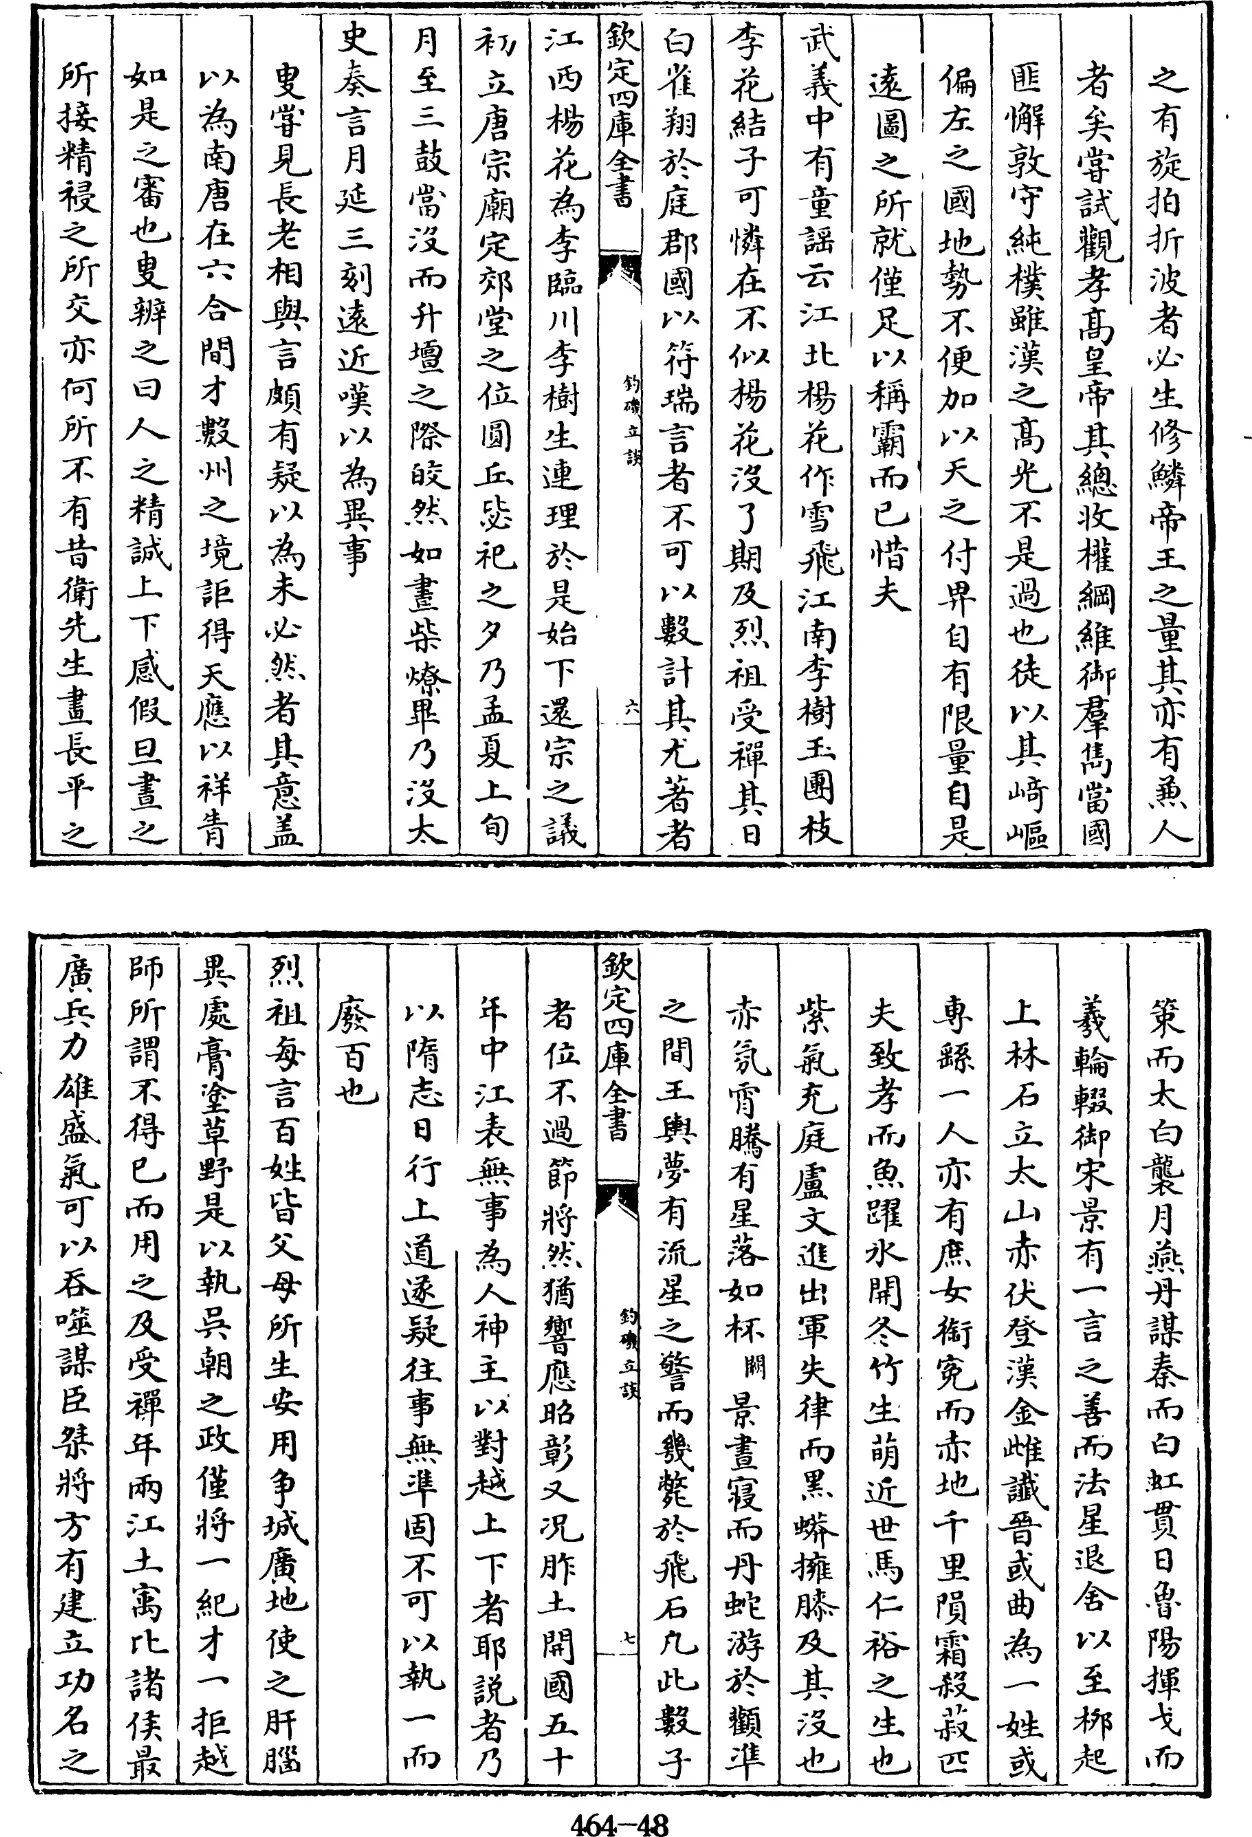 之有旋拍折波者必生修鱗帝王之量其亦有兼人
者矣嘗試觀孝髙皇帝其總收權綱維御羣雋當國
匪懈敦守純樸雖漢之髙光不是過也徒以其﨑嶇
偏左之國地勢不便加以天之付畀自有限量自是
逺圖之所就僅足以稱霸而已惜夫
武義中有童謡云江北楊花作雪飛江南李樹玉團枝
李花結子可憐在不似楊花没了期及烈祖受禪其日
白雀翔於庭郡國以符瑞言者不可以數計其尤著者
欽定四庫全書
釣磯立談
六
江西楊花為李臨川李樹生連理於是始下還宗之議
初立唐宗廟定郊堂之位圓丘毖祀之夕乃孟夏上旬
月至三鼓當沒而升壇之際皎然如晝柴燎畢乃沒太
史奏言月延三刻逺近嘆以為異事
叟嘗見長老相與言頗有疑以為未必然者其意盖
以為南唐在六合間才數州之境詎得天應以祥眚
如是之審也叟辨之曰人之精誠上下感假旦晝之
所接精祲之所交亦何所不有昔衛先生畫長平之
策而太白襲月燕丹謀秦而白虹貫日魯陽揮戈而
羲輪輟御宋景有一言之善而法星退舍以至栁起
上林石立太山赤伏登漢金雌讖晉或曲為一姓或
專繇一人亦有庶女銜寃而赤地千里隕霜殺菽匹
夫致孝而魚躍氷開冬竹生萌近世馬仁裕之生也
紫氣充庭盧文進出軍失律而黒蟒擁膝及其没也
赤氛宵騰有星落如杯闕景晝寢而丹蛇游於顴準
之間王輿夢有流星之警而幾斃於飛石凢此數子
欽定四庫全書
釣磯立談
七
者位不過節將然猶響應昭彰又况胙土開國五十
年中江表無事為人神主以對越上下者耶説者乃
以隋志日行上道遂疑往事無準固不可以執一而
廢百也
烈祖每言百姓皆父母所生安用争城廣地使之肝腦
異處膏塗草野是以執吳朝之政僅將一紀才一拒越
師所謂不得已而用之及受禪年兩江土寓比諸侯最
廣兵力雄盛氣可以吞噬謀臣桀將方有建立功名之
464-48